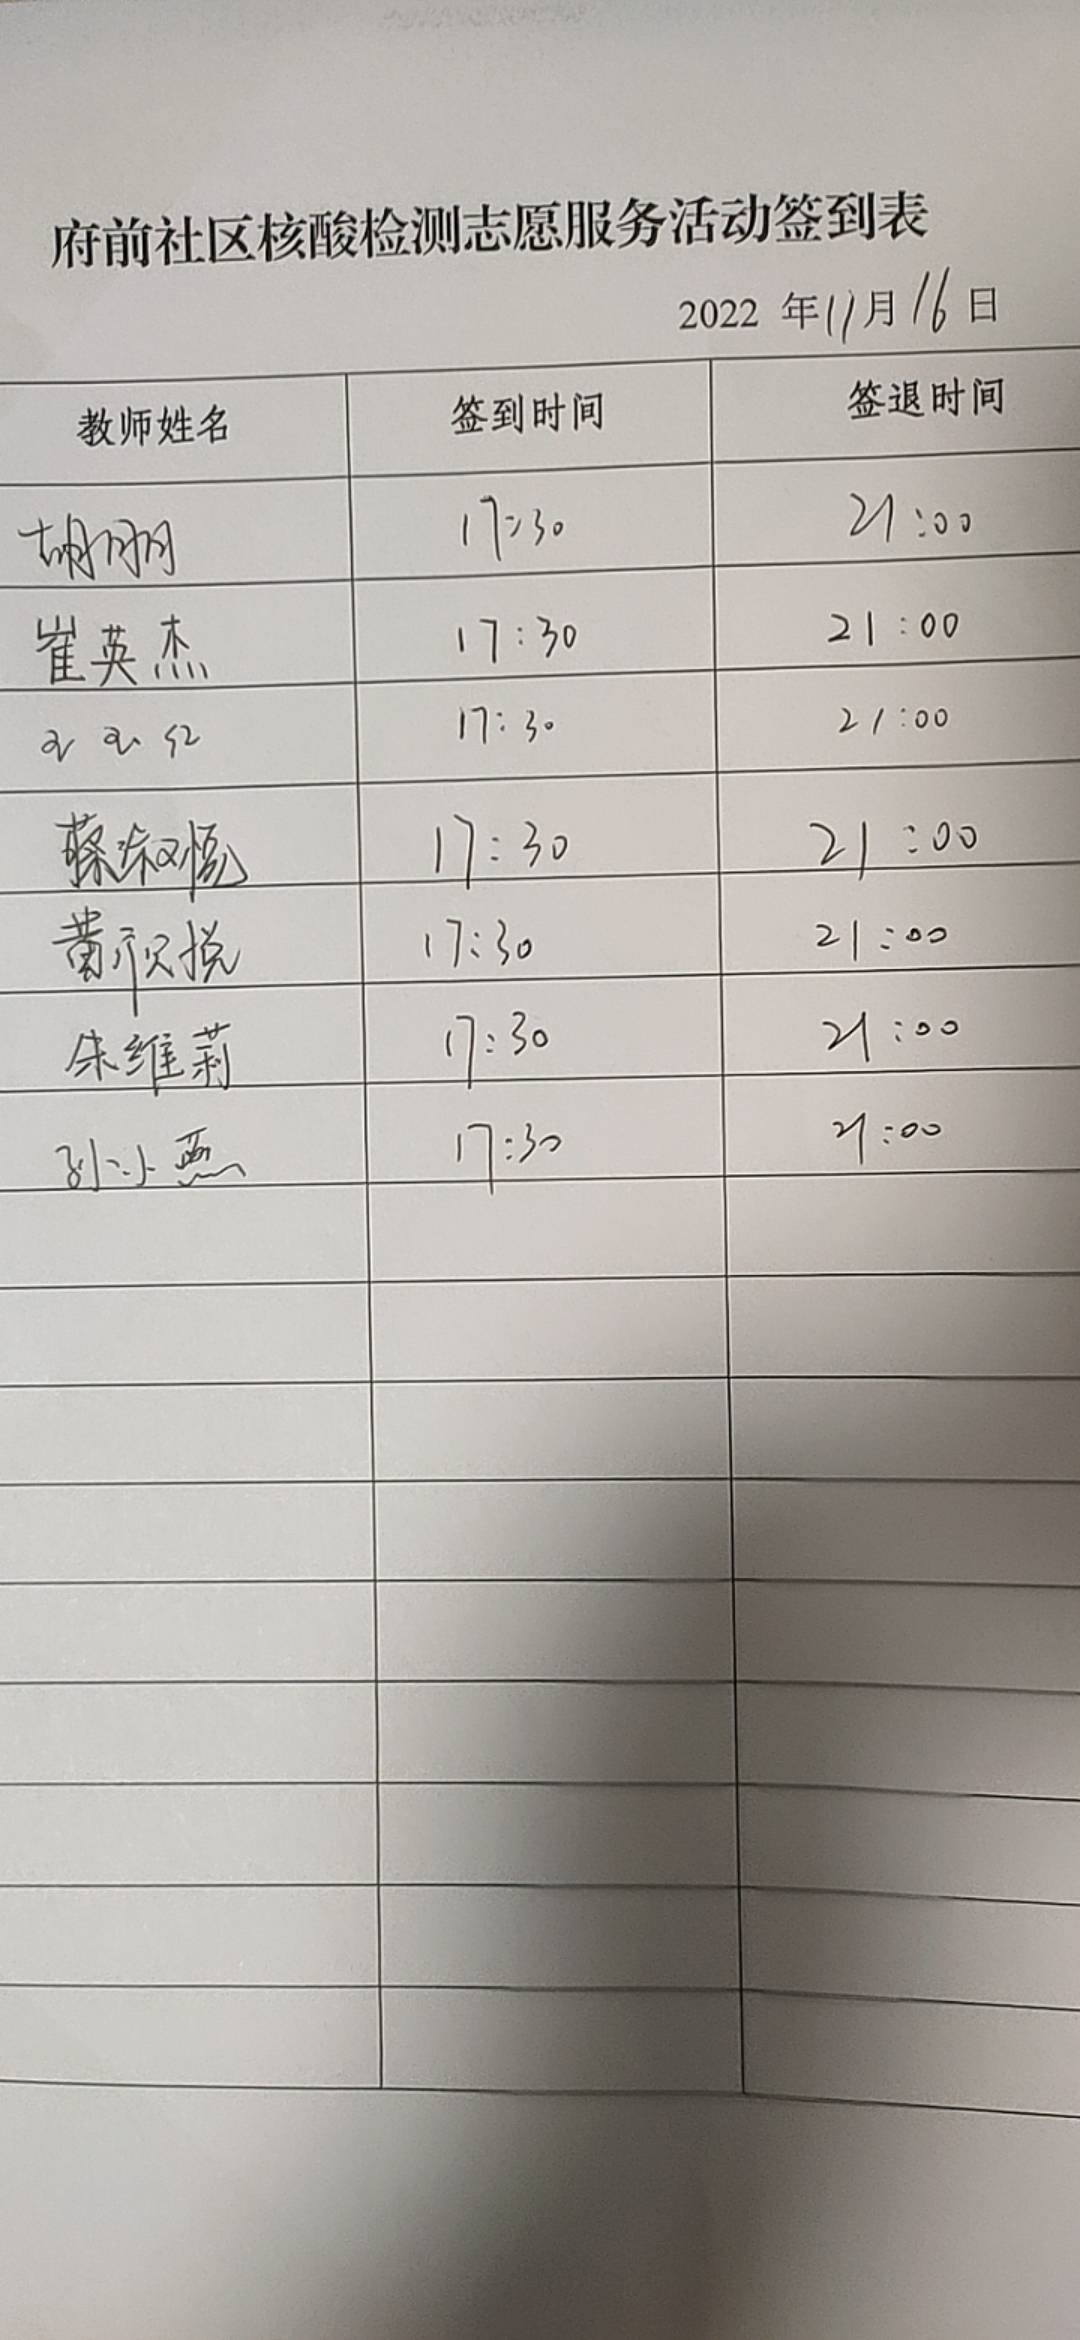 府前社区核酸检测志愿服务活动签到表
2022 年 11 月 16 日
教师姓名 签到时间 签退时间
胡明明 17:30 21:00
崔英杰 17:30 21:00
17:30 21:00
蔡淑悦 17:30 21:00
黄欣悦 17:30 21:00
朱维莉 17:30 21:00
孙小燕 17:30 21:00